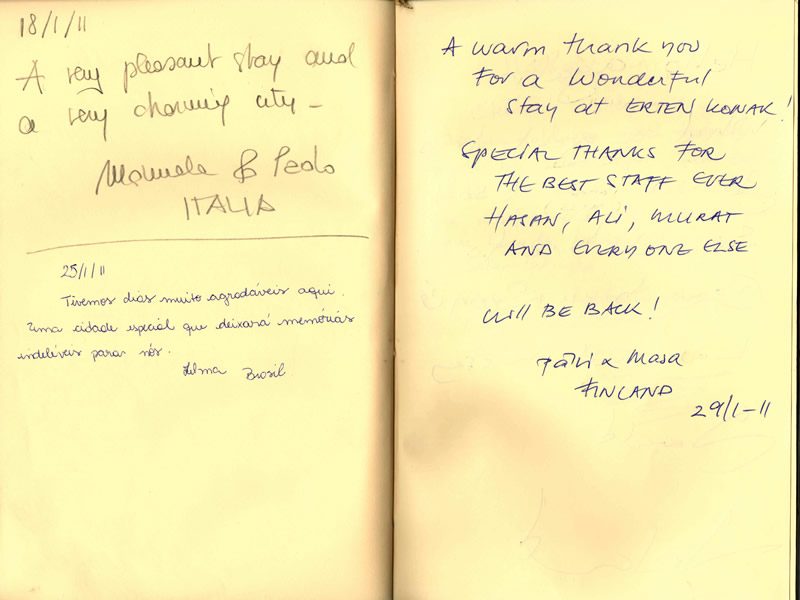 18/1/11
A very pleasant stay and
a very charming city -
Manuela & Pedo
ITALIA
25/1/11
Tivemos dias muito agradáveis aqui.
Uma cidade especial que deixará memórias
indeléveis para nós.
Brasil
A warm thank you
For a wonderful
stay at ERTEN KONAK!
SPECIAL THANKS FOR
THE BEST STAFF EVER
HASAN, ALI, MURAT
AND EVERYONE ELSE
Will BE BACK!
& Masa
FINLAND
29/1-11